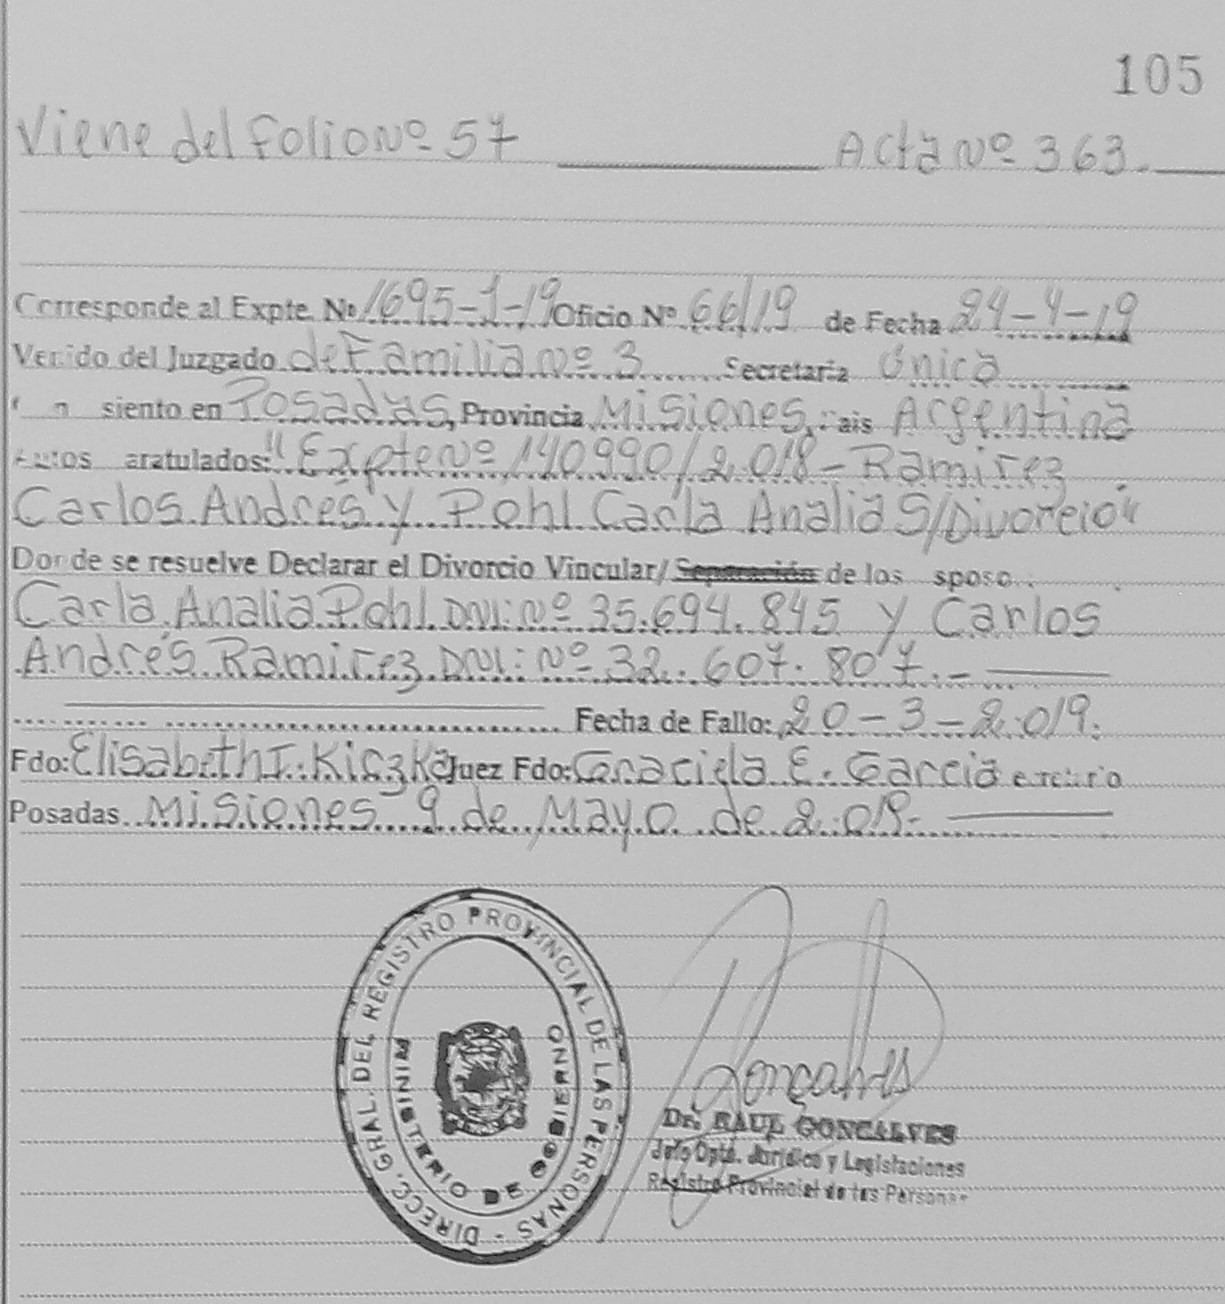 105
Viene del Folio Nº 57 Acta Nº 363.
Corresponde al Expte. Nº 1695-1-19 Oficio Nº 66/19 de Fecha 24-4-19
Venido del Juzgado de Familia Nº 3 Secretaria Única
siento en Posadas, Provincia Misiones, Pais Argentina
Autos aratulados: "Expte Nº 140990/2.018 - Ramirez
Carlos Andrés y Pohl Carla Analia S/Divorcio"
Donde se resuelve Declarar el Divorcio Vincular/Separación de los sposo
Carla Analia Pohl DNI: Nº 35.694.845 y Carlos
Andrés Ramirez DNI: Nº 32.607.807.-
Fecha de Fallo: 20-3-2.019.
Fdo: Elisabeth I. Kiczka Juez Fdo: Graciela E. Garcia
Posadas Misiones 9 de Mayo de 2.019.
DIRECC. GRAL. DEL REGISTRO PROVINCIAL DE LAS PERSONAS -
MINISTERIO DE GOBIERNO
Goncalves
Dr. RAUL GONCALVES
Jefe Dpto. Jurídico y Legislaciones
Registro Provincial de las Personas